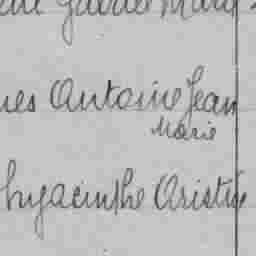 Gabriel Marie
ues Antoine Jean
Marie
hyacinthe Aristi